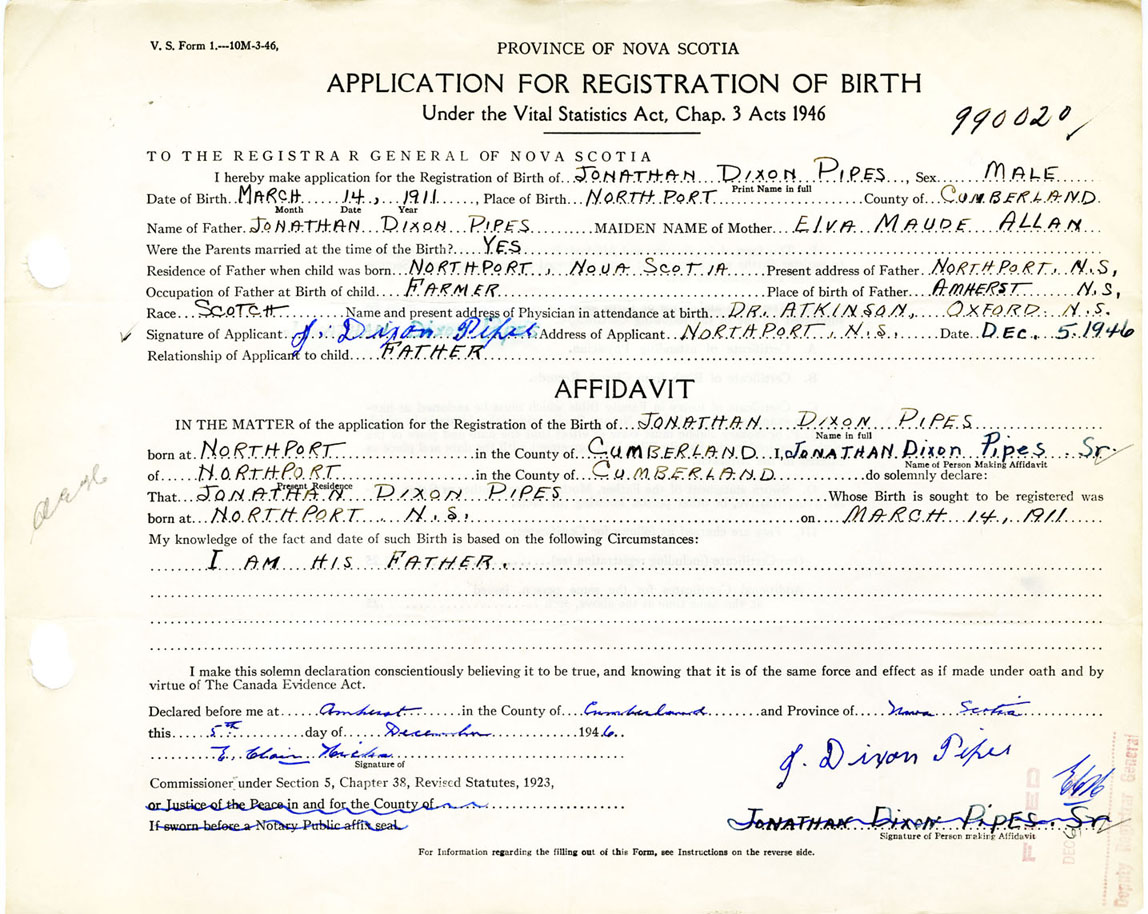 V. S. Form 1.---10M-3-46,
PROVINCE OF NOVA SCOTIA
APPLICATION FOR REGISTRATION OF BIRTH
Under the Vital Statistics Act, Chap. 3 Acts 1946
990020
TO THE REGISTRAR GENERAL OF NOVA SCOTIA
I hereby make application for the Registration of Birth of JONATHAN DIXON PIPES, Sex MALE
Print Name in full
Date of Birth MARCH 14, 1911, Place of Birth NORTH PORT County of CUMBERLAND
Month Date Year
Name of Father JONATHAN DIXON PIPES MAIDEN NAME of Mother ELVA MAUDE ALLAN
Were the Parents married at the time of the Birth? YES
Residence of Father when child was born NORTHPORT, NOVA SCOTIA Present address of Father NORTHPORT, N.S,
Occupation of Father at Birth of child FARMER Place of birth of Father AMHERST N.S,
Race SCOTCH Name and present address of Physician in attendance at birth DR. ATKINSON, OXFORD N.S.
Signature of Applicant J. Dixon Pipes Address of Applicant NORTHPORT, N.S. Date DEC. 5, 1946
Relationship of Applicant to child FATHER
AFFIDAVIT
IN THE MATTER of the application for the Registration of the Birth of JONATHAN DIXON PIPES
Name in full
born at NORTHPORT in the County of CUMBERLAND I, JONATHAN Dixon Pipes Sr
Name of Person Making Affidavit
of NORTHPORT in the County of CUMBERLAND do solemnly declare:
Present Residence
That JONATHAN DIXON PIPES Whose Birth is sought to be registered was
born at NORTHPORT, N.S. on MARCH 14, 1911
My knowledge of the fact and date of such Birth is based on the following Circumstances:
I AM HIS FATHER.
I make this solemn declaration conscientiously believing it to be true, and knowing that it is of the same force and effect as if made under oath and by
virtue of The Canada Evidence Act.
Declared before me at Amherst in the County of Cumberland and Province of Nova Scotia
this 5th day of December 1946.
E. Clair
Signature of
J. Dixon Pipes
Commissioner under Section 5, Chapter 38, Revised Statutes, 1923,
or Justice of the Peace in and for the County of
If sworn before a Notary Public affix seal
JONATHAN DIXON PIPES. Sr
Signature of Person making Affidavit
FILED
DEC
Deputy Registrar General
For Information regarding the filling out of this Form, see Instructions on the reverse side.